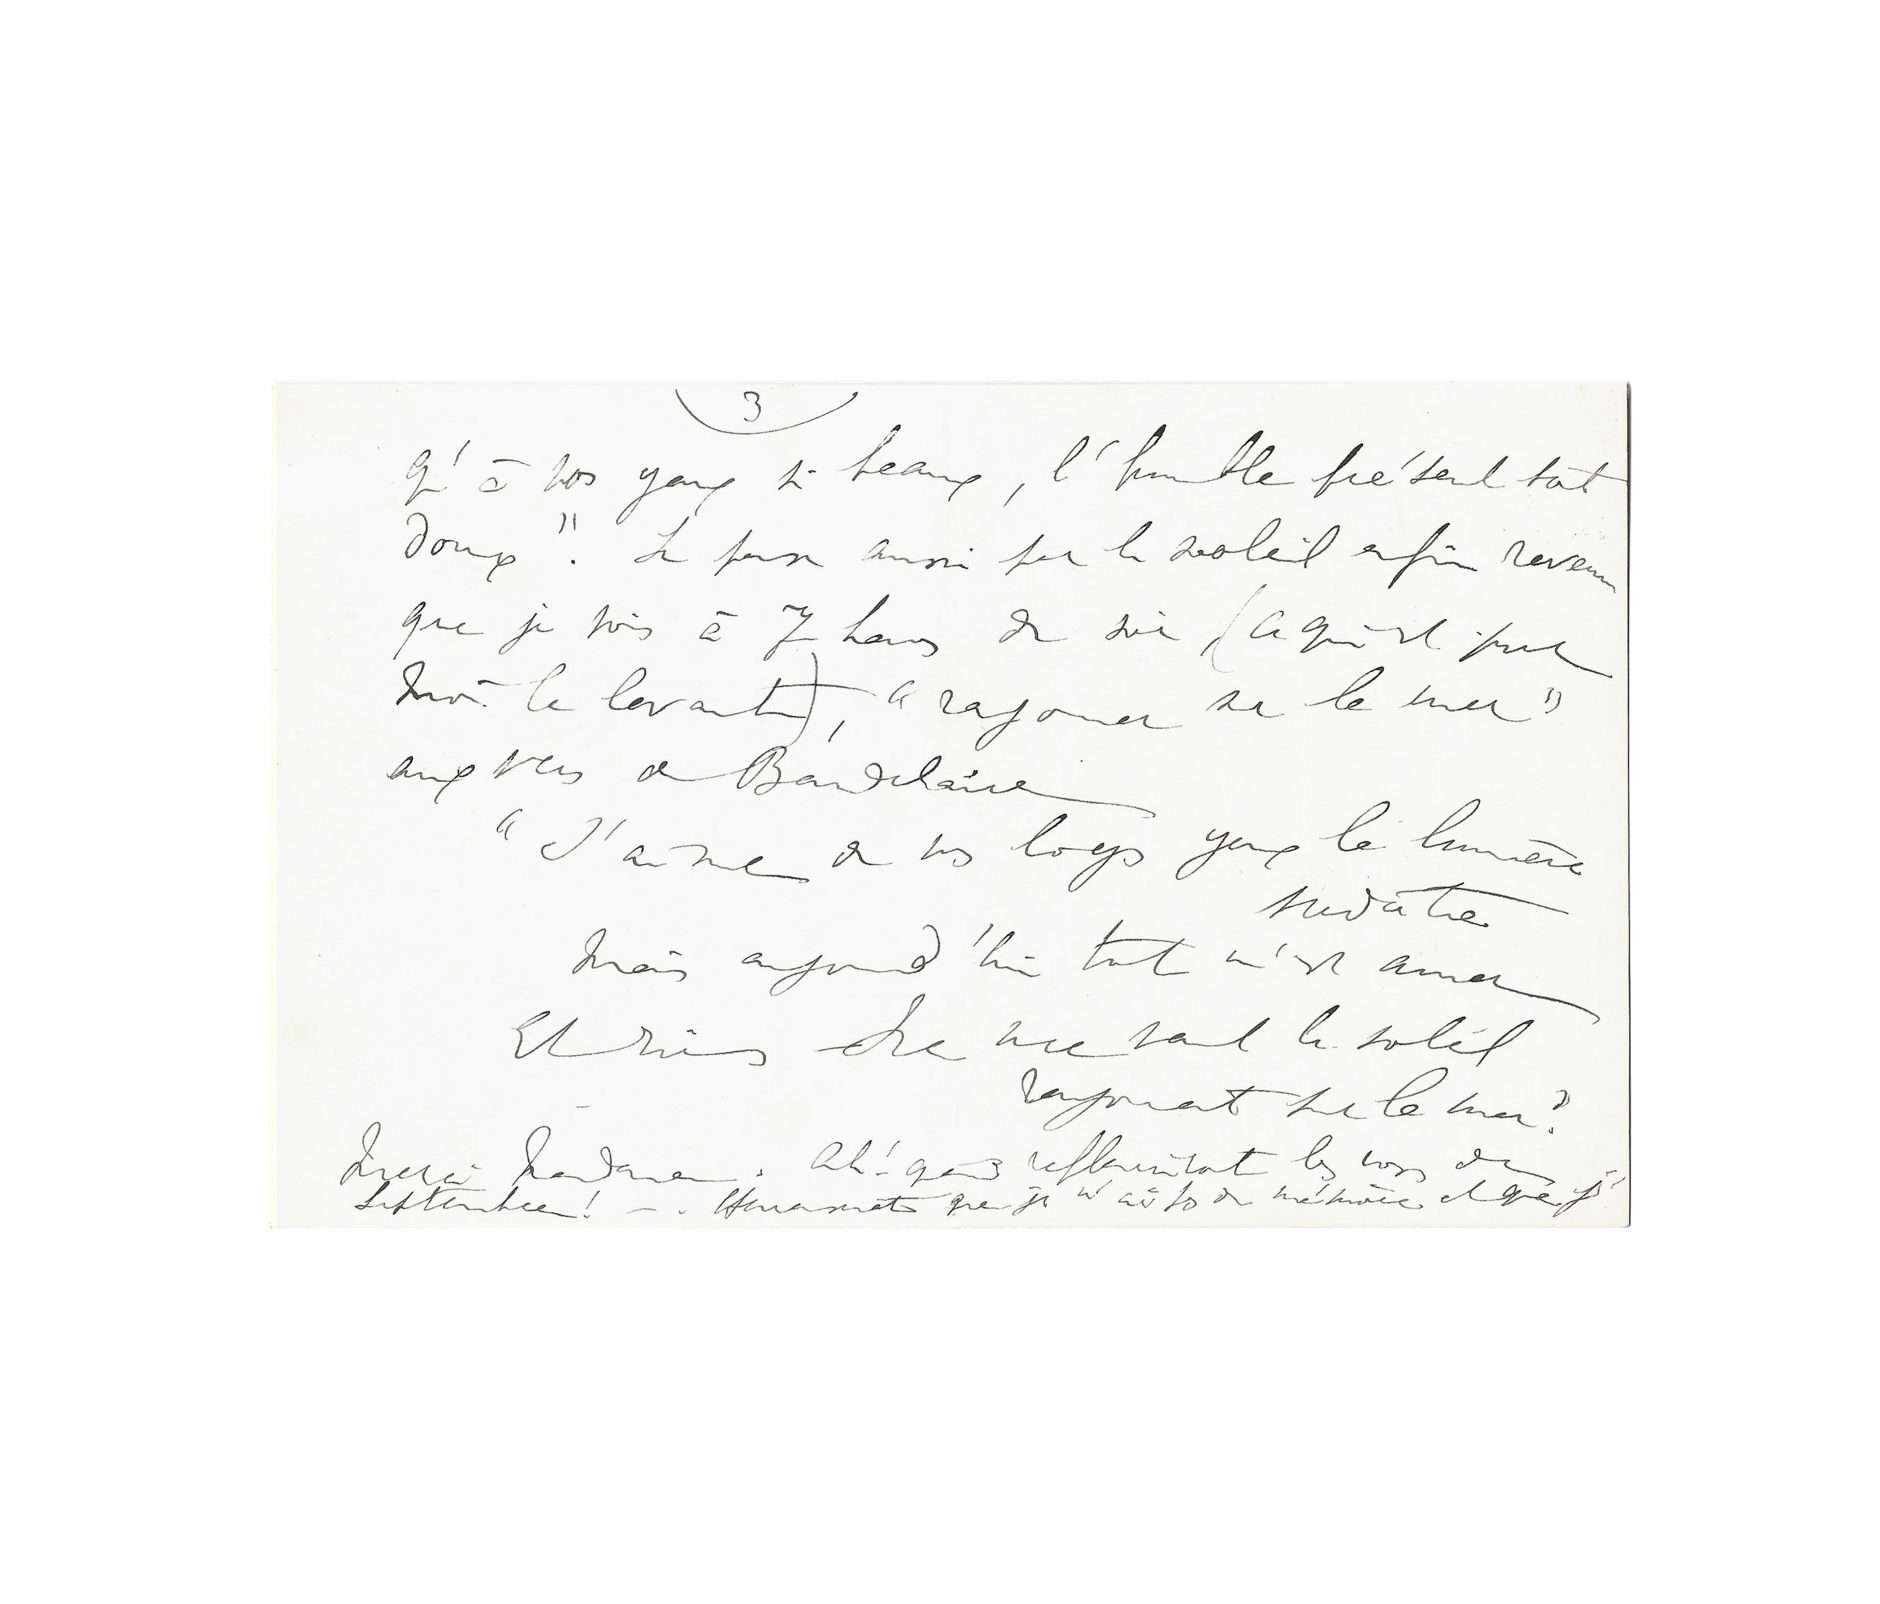 3
qu'à vos yeux si beaux, l'humble présent soit
doux". Je pense aussi par le soleil enfin revenu
que je vois à 7 heures du soir (ce qui est pour
moi le levant), "rayonner sur la mer"
aux vers de Baudelaire
"J'aime de vos longs yeux la lumière
verdâtre
Mais aujourd'hui tout m'est amer
Et rien ne me vaut le soleil
rayonnant sur la mer".
Merci Madame. Ah! quand refleuriront les roses de
Septembre! — Heureusement que je n'ai pas de mémoire et que j'